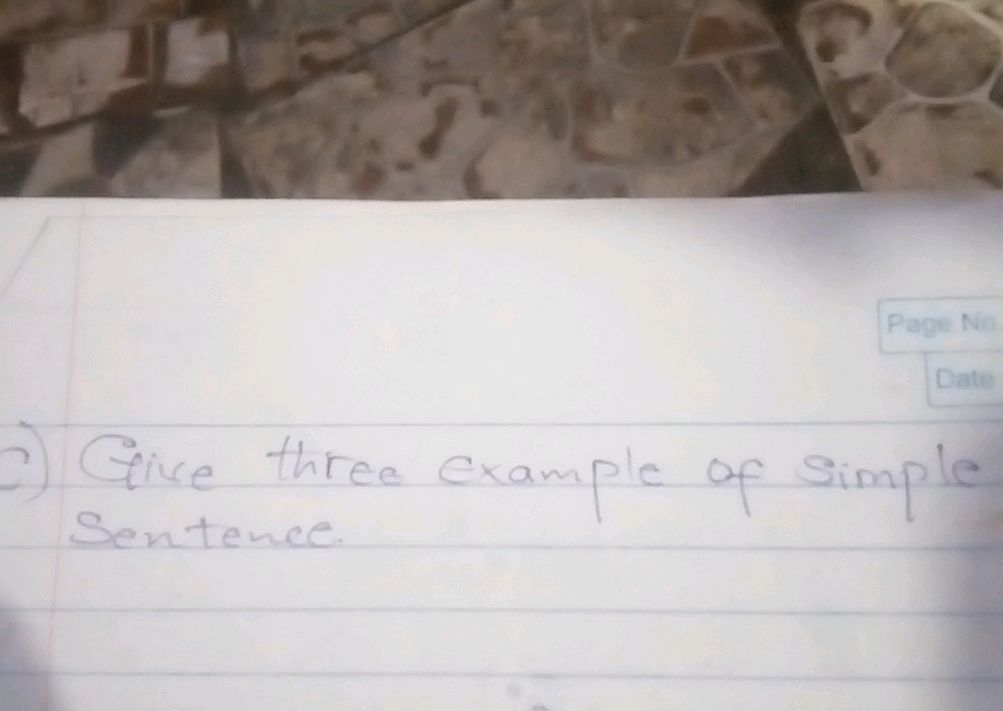 Page No
Date
c) Give three example of Simple
Sentence.